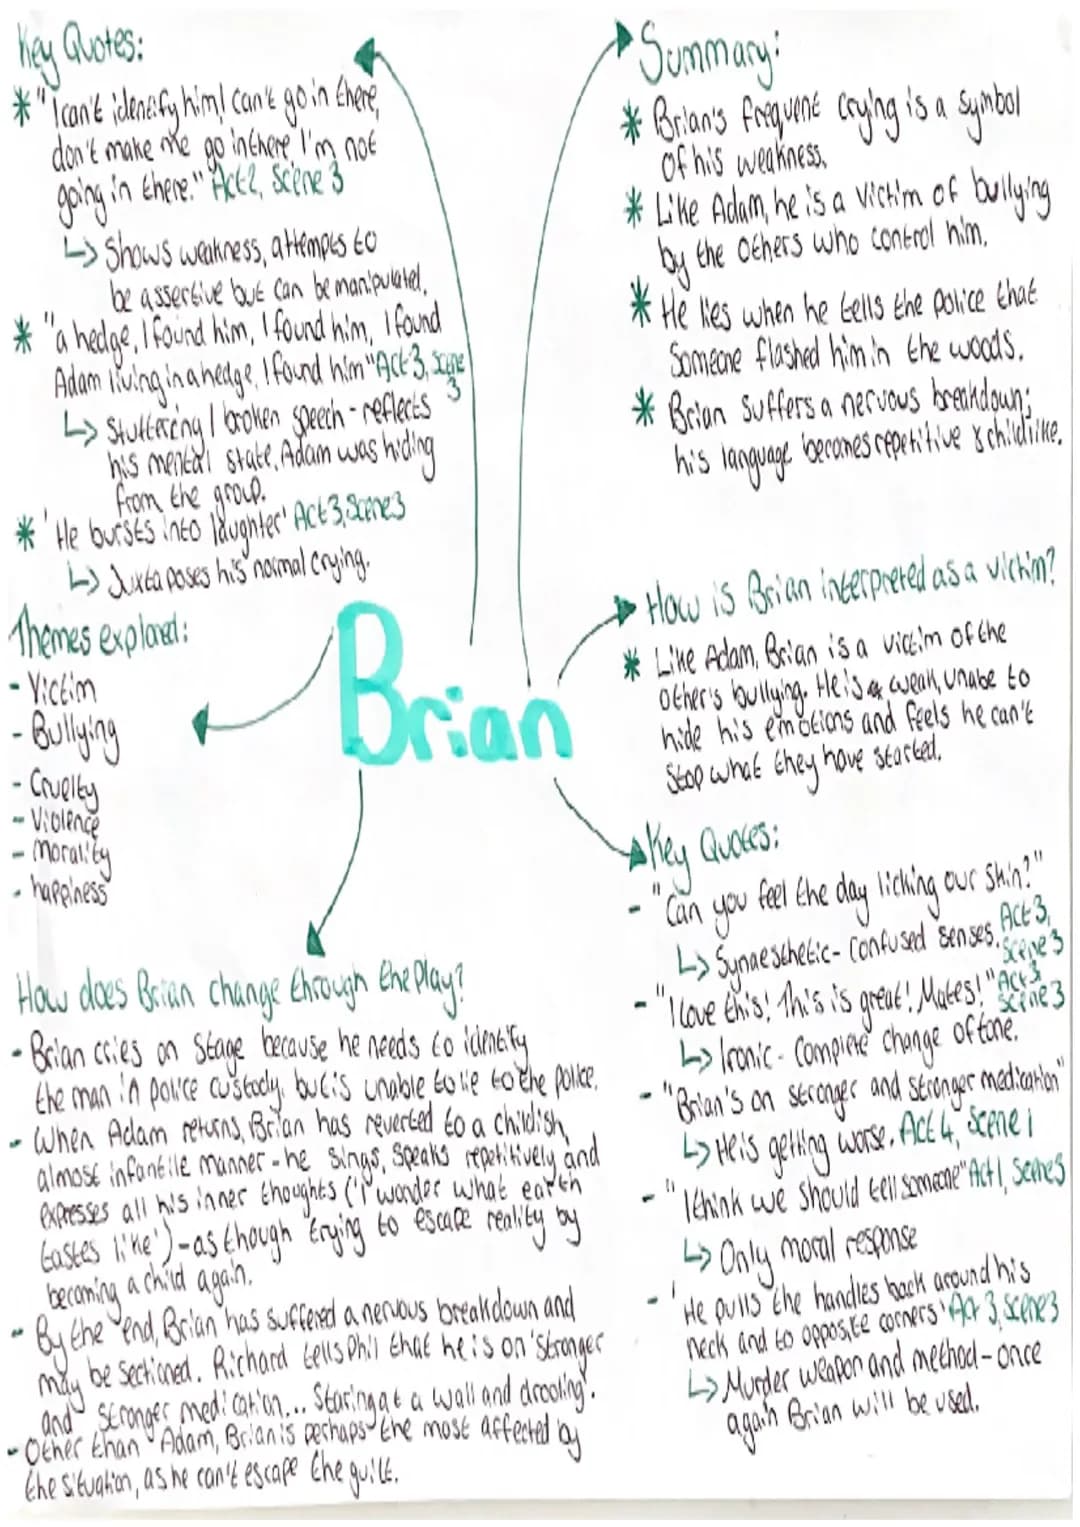 Key Quotes:
* "I can't identify him I can't go in there,
don't make me go in there I'm not
going in there." Act 2, Scene 3
↳ Shows weakness, attempts to
be assertive but can be manipulated.
* "a hedge, I found him, I found him, I found
Adam living in a hedge, I found him" Act 3, Scene
3
↳ Stuttering / broken speech - reflects
his mental state. Adam was hiding
from the group.
* 'He bursts into laughter' Act 3, Scene 3
↳ Juxtaposes his normal crying.
Themes explored:
- Victim
- Bullying
- Cruelty
- Violence
- morality
- happiness
Brian
How does Brian change through the play?
- Brian cries on stage because he needs to identify
the man in police custody, but is unable to lie to the police.
- When Adam returns, Brian has reverted to a childish,
almost infantile manner - he sings, speaks repetitively and
expresses all his inner thoughts ('I wonder what earth
tastes like') - as though trying to escape reality by
becoming a child again.
- By the end, Brian has suffered a nervous breakdown and
may be sectioned. Richard tells Phil that he is on 'stronger
and stronger medication... Staring at a wall and drooling'.
- Other than Adam, Brian is perhaps the most affected by
the situation, as he can't escape the guilt.
Summary:
* Brian's frequent crying is a symbol
of his weakness.
* Like Adam, he is a victim of bullying
by the others who control him.
* He lies when he tells the police that
Someone flashed him in the woods.
* Brian suffers a nervous breakdown;
his language becomes repetitive & childlike.
How is Brian interpreted as a victim?
* Like Adam, Brian is a victim of the
other's bullying. He is weak, unabe to
hide his emotions and feels he can't
stop what they have started.
Key Quotes:
- "Can you feel the day licking our skin?"
↳ Synaesthetic - confused senses. Act 3,
Scene 3
- "I love this! This is great! Mates!" Act 3
Scene 3
↳ Ironic - Complete change of tone.
- "Brian's on stronger and stronger medication"
↳ He is getting worse. Act 4, Scene 1
- "I think we should tell someone" Act 1, Scene 3
↳ Only moral response
- 'He pulls the handles back around his
neck and to opposite corners' Act 3, Scene 3
↳ Murder weapon and method - once
again Brian will be used.